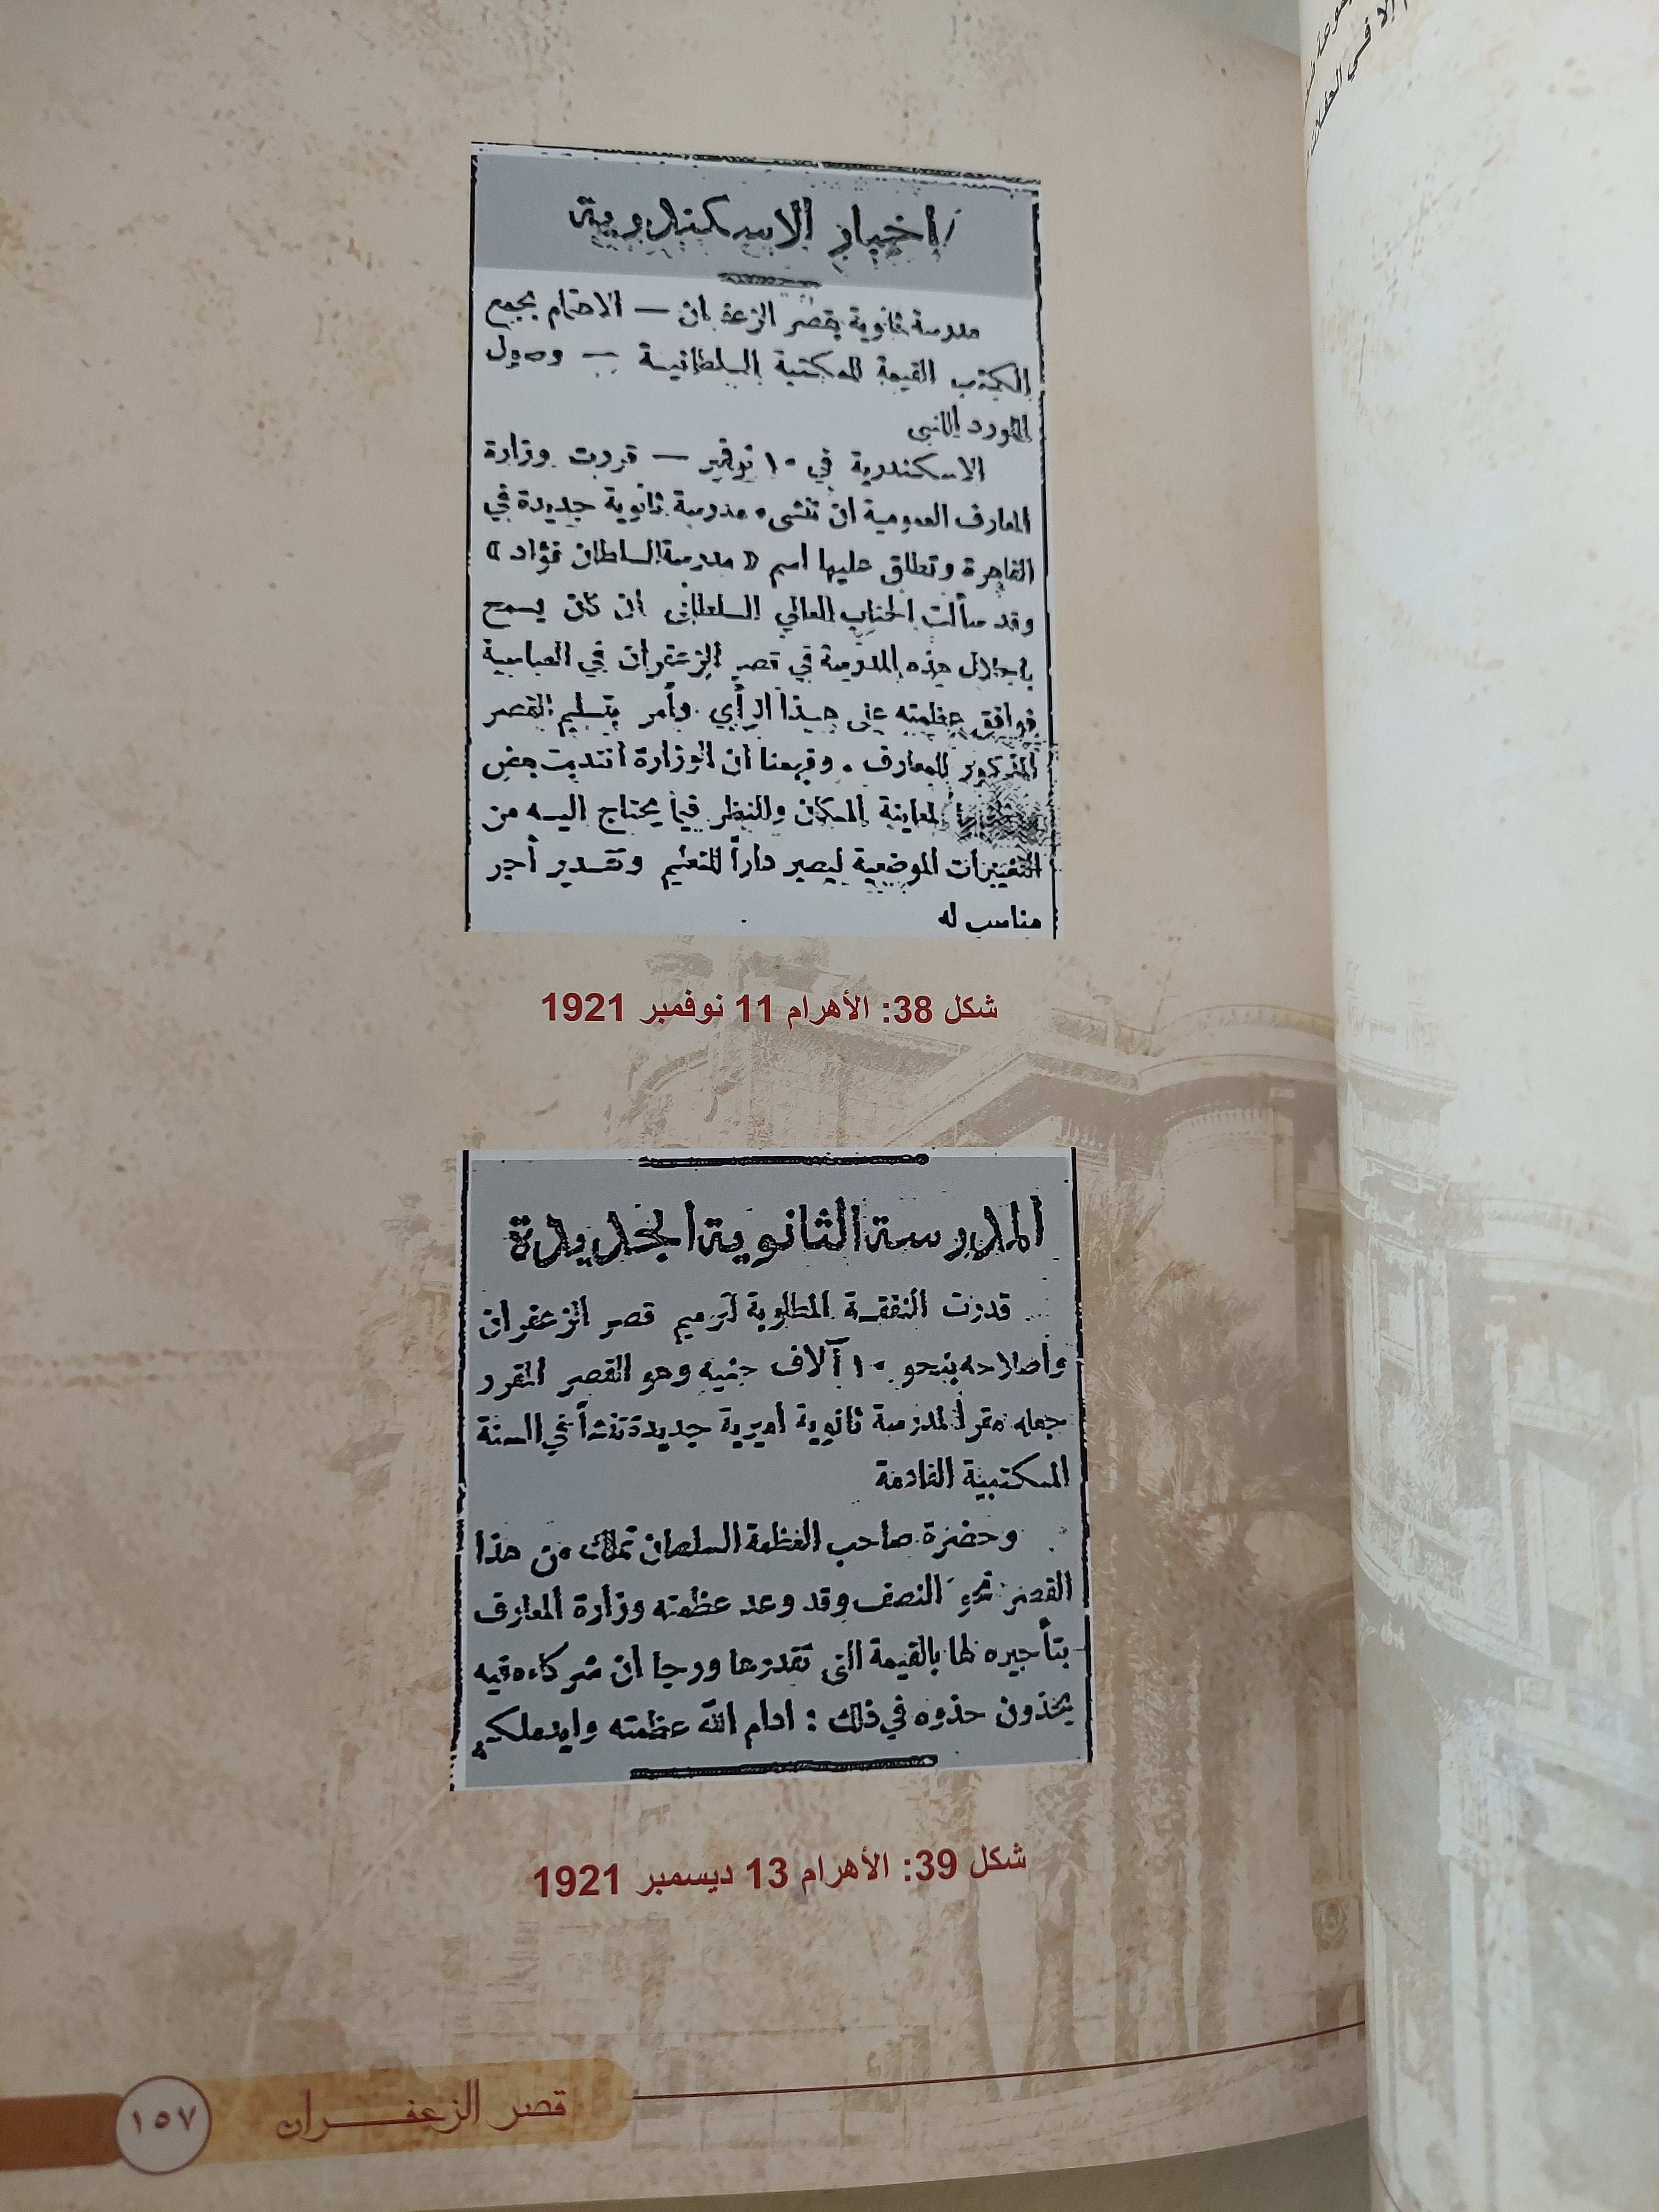 اخبار الاسكندرية
مدرسة ثانوية بقصر الزعفران — الاهتمام بجمع
الكتب القيمة للمكتبة السلطانية — وصول
اللورد اللنبي
الاسكندرية في ١٠ نوفمبر — قررت وزارة
المعارف العمومية ان تنشىء مدرسة ثانوية جديدة في
القاهرة وتطلق عليها اسم « مدرسة السلطان فؤاد »
وقد سألت الجناب العالي السلطاني ان كان يسمح
باحلال هذه المدرسة في قصر الزعفران في العباسية
فوافق عظمته على هذا الرأي وأمر بتسليم القصر
المذكور للمعارف . وفهمنا ان الوزارة انتدبت بعض
لمعاينة المكان والنظر فيما يحتاج اليه من
التغييرات الموضعية ليصير داراً للتعليم وتقدير أجر
مناسب له
شكل 38: الأهرام 11 نوفمبر 1921
المدرسة الثانوية الجديدة
قدرت النفقة المطلوبة لترميم قصر الزعفران
واصلاحه بنحو ١٠ آلاف جنيه وهو القصر المقرر
جعله مقراً لمدرسة ثانوية اميرية جديدة تنشأ في السنة
المكتبية القادمة
وحضرة صاحب العظمة السلطان تملك من هذا
القصر نحو النصف وقد وعد عظمته وزارة المعارف
بتأجيره لها بالقيمة التي تقدرها ورجا ان شركاءه فيه
يحذون حذوه في ذلك : ادام الله عظمته وايد ملكه
شكل 39: الأهرام 13 ديسمبر 1921
قصر الزعفران
١٥٧